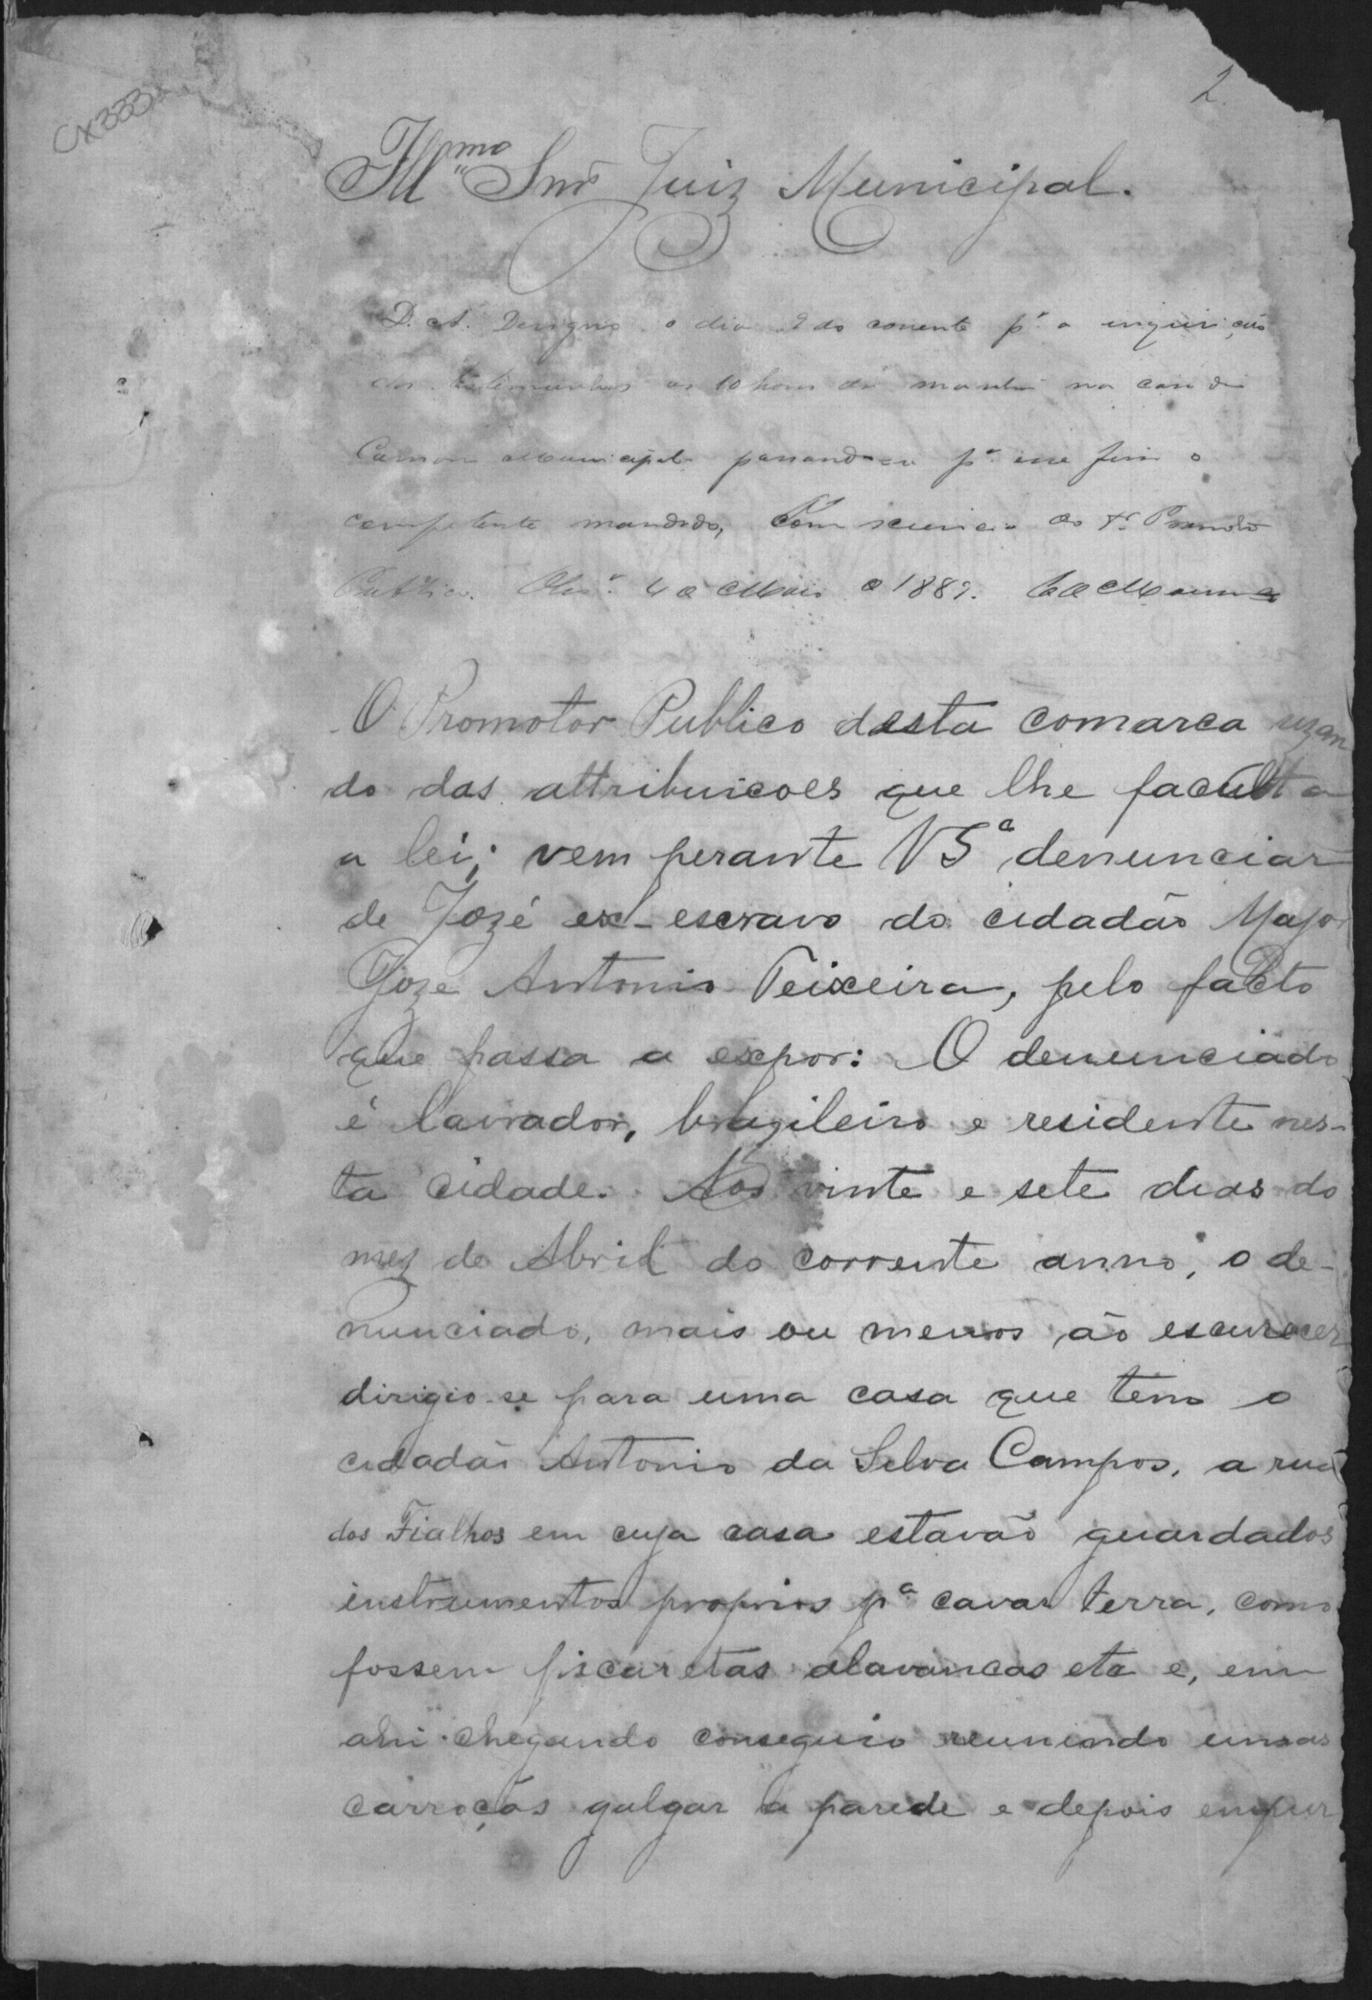 2
Cx333
Illmo Snr Juiz Municipal.
D. A. Designo o dia 9 do corrente pª a inquirição
das testimunhas as 10 horas da manhã na casa da
Camara Municipal passando-se pª esse fim o
competente mandado, com sciencia do Dr Promotor
Publico. 4 de Maio de 1889.
O Promotor Publico desta comarca uzan
do das attribuicoes que lhe faculta
a lei; vem perante VSª denunciar
de Jozé ex-escravo do cidadão Major
Joze Antonio Teixeira, pelo facto
que passa a expor: O denunciado
é lavrador, brazileiro e residente nes-
ta cidade. Aos vinte e sete dias do
mez de Abril do corrente anno, o de-
nunciado, mais ou menos ão escurecer
dirigio-se para uma casa que tem o
cidadão Antonio da Silva Campos, a rua
dos Fialhos em cuja casa estavão guardados
instrumentos proprios pª cavar terra, como
fossem piscaretas alavancas etc e, em
ahi chegando conseguio reunindo umas
carroças galgar a parede e depois empur